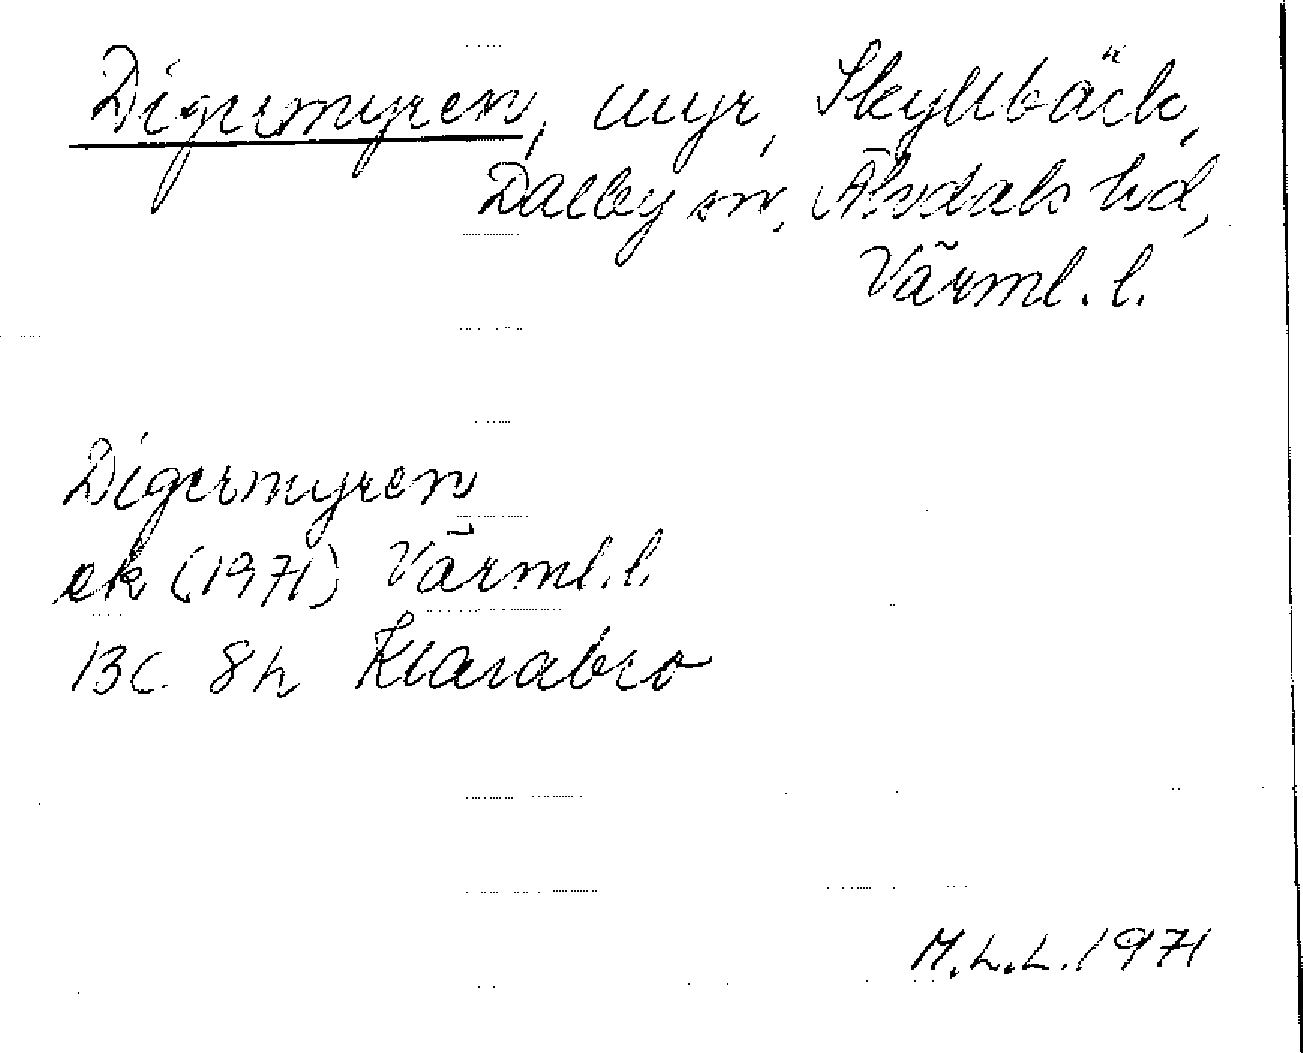 Digermyren, myr, Skyllbäck,
Dalby sn, Älvdals hd,
Värml. l.
Digermyren
ek (1971) Värml. l.
13C 8h Klarabro
M.L.L. 1971